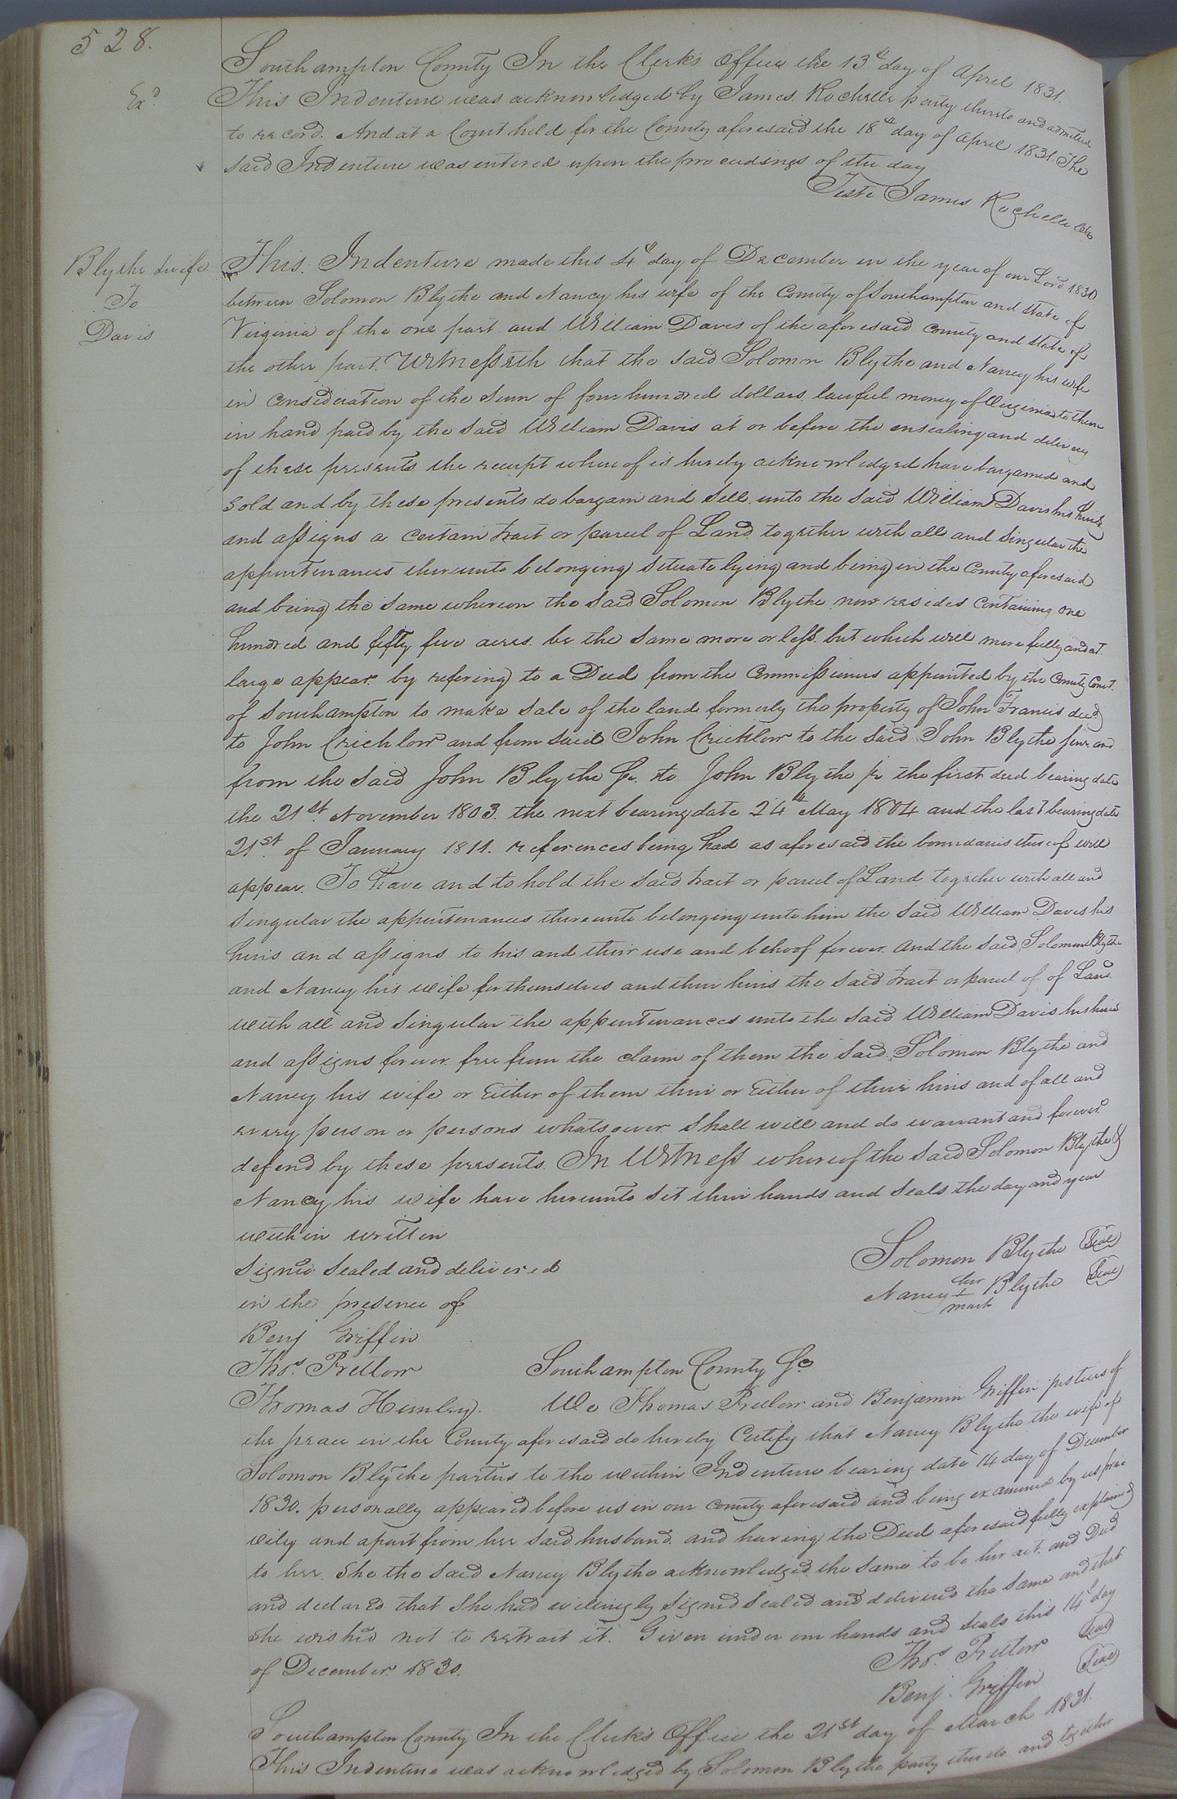 528.
Southampton County In the Clerks Office the 13th day of April 1831.
Exd
This Indenture was acknowledged by James Rochelle party thereto and admitted
to record. And at a Court held for the County aforesaid the 18th day of April 1831 The
said Indenture was entered upon the proceedings of the day
Teste James Rochelle Clk
Blythe & wife
To
Davis
This Indenture made this 4th day of December in the year of our Lord 1830
between Solomon Blythe and Nancy his wife of the County of Southampton and state of
Virginia of the one part and William Davis of the aforesaid County and state of
the other part. Witnesseth that the said Solomon Blythe and Nancy his wife
in consideration of the sum of four hundred dollars, lawful money of Virginia to them
in hand paid by the said William Davis at or before the ensealing and delivery
of these presents the receipt whereof is hereby acknowledged have bargained and
sold and by these presents do bargain and sell unto the said William Davis his heirs
and assigns a certain tract or parcel of Land together with all and singular the
appurtenances thereunto belonging situate lying and being in the County aforesaid
and being the same whereon the said Solomon Blythe now resides containing one
hundred and fifty five acres be the same more or less but which will more fully and at
large appear by refering to a Deed from the Commissioners appointed by the County Court
of Southampton to make sale of the land formerly the property of John Francis decd
to John Crichlow and from said John Crichlow to the said John Blythe Junr and
from the said John Blythe Sr. to John Blythe jr the first deed bearing date
the 21st November 1803. the next bearing date 24th May 1804 and the last bearing date
21st of January 1811. references being had as aforesaid the boundaries thereof will
appear. To Have and to hold the said tract or parcel of Land together with all and
singular the appurtenances thereunto belonging unto him the said William Davis his
heirs and assigns to his and their use and behoof forever. And the said Solomon Blythe
and Nancy his wife for themselves and their heirs the said tract or parcel of of Land
with all and singular the appurtenances unto the said William Davis his heirs
and assigns forever free from the claim of them the said Solomon Blythe and
Nancy his wife or Either of them their or Either of their heirs and of all and
every person or persons whatsoever shall will and do warrant and forever
defend by these presents. In Witness whereof the said Solomon Blythe &
Nancy his wife have hereunto set their hands and seals the day and year
within written
Solomon Blythe Seal
Signed Sealed and delivered
Nancy her + mark Blythe Seal
in the presence of
Benj Griffin
Thos. Pretlow
Southampton County Sc
Thomas Hunley
We Thomas Pretlow and Benjamin Griffin justices of
the peace in the County aforesaid do hereby Certify that Nancy Blythe the wife of
Solomon Blythe parties to the within Indenture bearing date 14 day of December
1830. personally appeared before us in our County aforesaid and being examined by us priv
vily and apart from her said husband and having the Deed aforesaid fully explained
to her. She the said Nancy Blythe acknowledged the same to be her act and Deed
and declared that she had willingly signed sealed and delivered the same and that
she wished not to retract it. Given under our hands and seals this 14 day
of December 1830.
Thos. Pretlow Seal
Benj. Griffin Seal
Southampton County In the Clerks Office the 21st day of March 1831.
This Indenture was acknowledged by Solomon Blythe party thereto and together